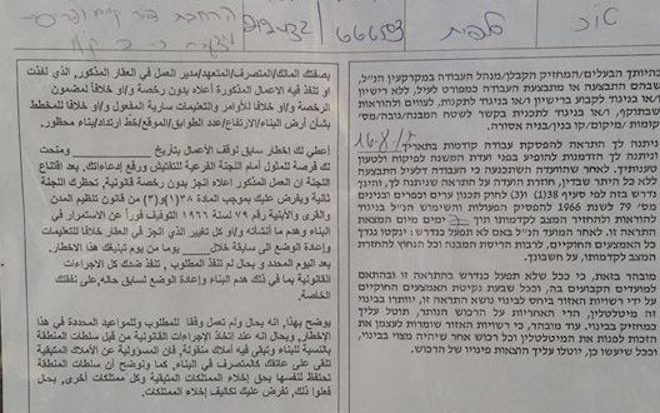 הרחבת
סלפית
בצפתك المالك/المتصرف/المتعهد/مدير العمل في العقار المذكور, الذي نفذت
او تنفذ فيه الاعمال المذكورة أعلاه بدون رخصة و/او خلافا لمضمون
الرخصة و/او خلافا للأوامر والتعليمات سارية المفعول و/او للمخطط
بشأن أرض البناء/الارتفاع/عدد الطوابق/الموقع/خط ارتداد/بناء محظور.
أعطي لك اخطار سابق لوقف الأعمال بتاريخ ومنحت
لك فرصة للمثول أمام اللجنة الفرعية للتفتيش ورفع إدعاءاتك, بعد اقتناع
اللجنة ان العمل المذكور أعلاه انجز بدون رخصة قانونية, تحظرك اللجنة
ثانية ويفرض عليك بموجب المادة ٣٨(١) و(٣) من قانون تنظيم المدن
والقرى والأبنية رقم ٧٩ لسنة ١٩٦٦ التوقيف فوراً عن الاستمرار في
البناء وهدم ما أنشأته و/او كل تغيير الذي انجز في العقار خلافا للتعليمات
وإعادة الوضع الى سابقة خلال يوما من يوم تبليغك هذا الاخطار.
بعد اليوم المحدد و بحال لم تنفذ المطلوب , تنفذ ضدك كل الإجراءات
القانونية بما في ذلك هدم البناء وإعادة الوضع لسابق حاله, على نفقتك
الخاصة.
يوضح بهذا, انه بحال ولم تعمل وفقا للمطلوب وللمواعيد المحددة في هذا
الإخطار, وبحال انه عند اتخاذ الإجراءات القانونية من قبل سلطات المنطقة
بالنسبة للبناء وتبقى فيه أملاك منقولة, فان المسؤولية عن الأملاك المتبقية
تلقى على عاتقك كالمتصرف في البناء. كما وتوضح إن سلطات المنطقة
تحتفظ لنفسها بحق إخلاء الممتلكات المتبقية وكل ممتلكات أخرى, بحال
فعلوا ذلك, تفرض عليك تكاليف إخلاء الممتلكات.
בהיותך הבעלים/המחזיק הקבלן/מנהל העבודה במקרקעין הנ"ל,
שבהם התבצעה או מתבצעת העבודה כמפורט לעיל, ללא רישיון
ו/או בניגוד לקבוע ברישיון ו/או בניגוד לתקנות, לצווים ולהוראות
שבתוקף, ו/או בניגוד לתכנית בקשר לשטח המבנה/גובה/מס'
קומות/מיקום/קו בנין/בניה אסורה.
ניתנה לך התראה להפסקת עבודה קודמות בתאריך
וניתנה לך הזדמנות להופיע בפני ועדת המשנה לפיקוח ולטעון
טענותיך, לאחר שהוועדה השתכנעה כי העבודה דלעיל התבצעה
ללא כל היתר שבדין, חוזרת הועדה על התראה שניתנה לך, והינך
נדרש בזה לפי סעיף 38(1) ו(3) לחוק תכנון ערים וכפרים ובניינים
מס' 79 לשנת 1966 להפסיק הפעולות והשימוש הנ"ל בניגוד
להוראות ולהחזיר המצב לקדמותו תוך ימים מיום המצאת
התראה זו. לאחר המועד הנ"ל באם לא תפעל כנדרש: ינקטו נגדך
כל האמצעים החוקיים, לרבות הריסת המבנה וכל הנחוץ להחזרת
המצב לקדמותו, על חשבונך.
מובהר בזאת, כי ככל שלא תפעל כנדרש בהתראה זו ובהתאם
למועדים הקבועים בה, וככל שבעת נקיטת האמצעים החוקיים
על ידי רשויות האזור ביחס לבינוי נושא התראה זו, יוותרו בבינוי
זה מיטלטלין, הרי האחריות על הרכוש הנותר, תוטל עליך
כמחזיק בבינוי. עוד מובהר, כי רשויות האזור שומרות לעצמן את
הזכות לפנות את המיטלטלין וכל רכוש אחר שיהיה מצוי בבינוי,
וככל שיעשו כן, יוטלו עליך הוצאות פינויו של הרכוש.